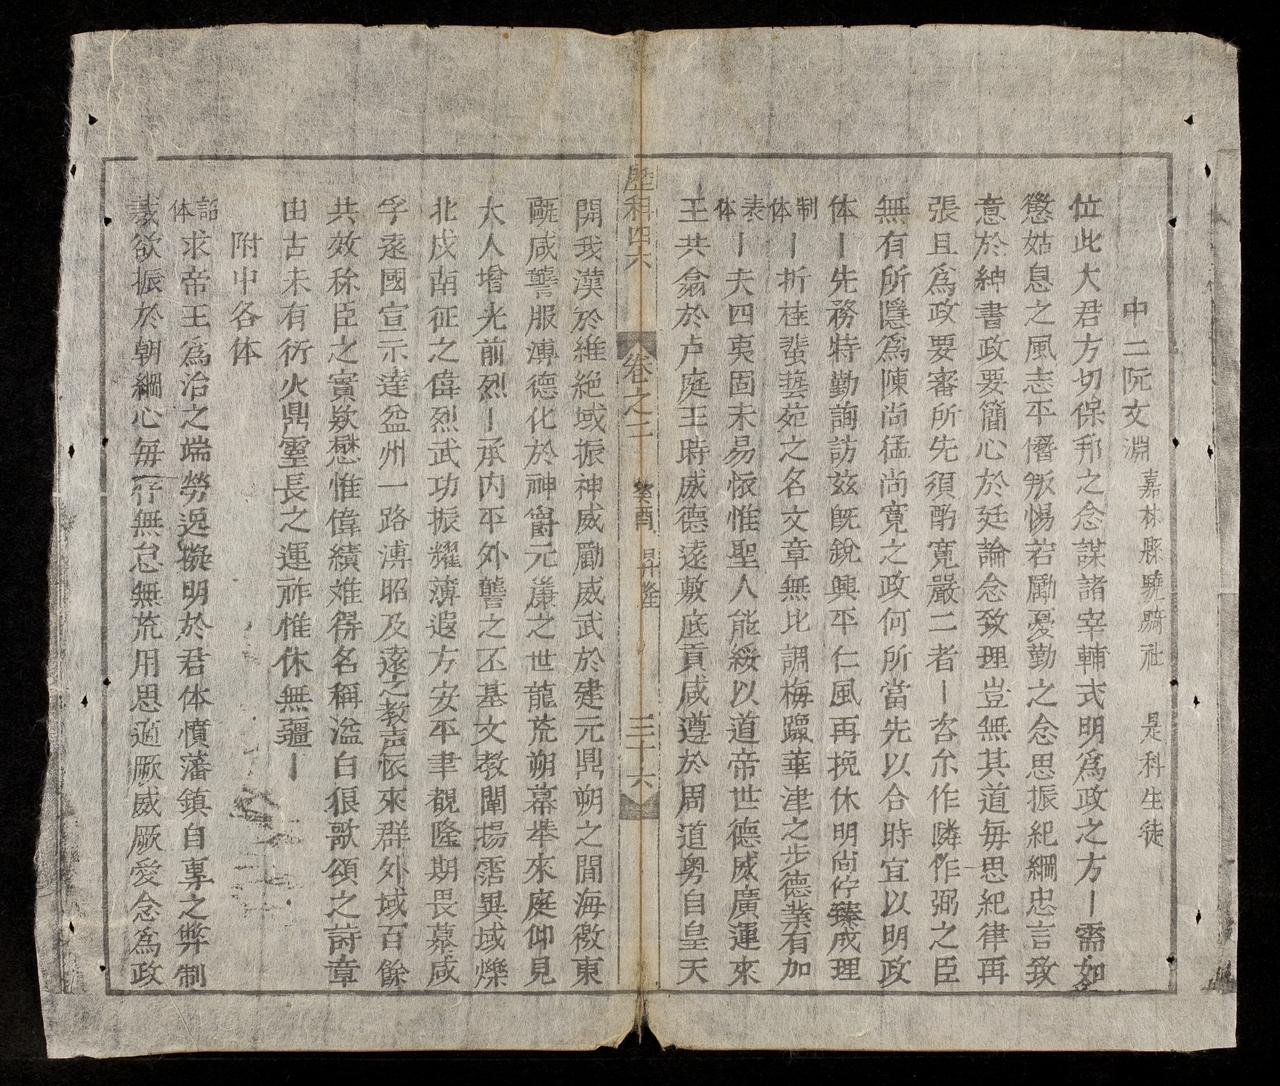 中二阮文淵 嘉林縣驍騎社 是科生徒
位此大君方切保邦之念謀諸宰輔式明爲政之方丨需如
懲姑息之風志平僭叛惕若勵憂勤之念思振紀綱忠言致
意於紳書政要簡心於廷論念致理豈無其道每思紀律再
張且爲政要審所先須酌寬嚴二者丨咨尒作隣作弼之臣
無有所隱爲陳尚猛尚寬之政何所當先以合時宜以明政
体丨先務特勤詢訪兹旣銳興平仁風再挽休明尚佇臻成理
制体丨折桂蜚藝苑之名文章無比調梅躡華津之步德業有加
表体丨夫四夷固未易怀惟聖人能綏以道帝世德威廣運來
王共翕於卢庭王時威德遠敷底貢咸遵於周道粤自皇天
歷科四六 卷之二 癸酉 昇隆 三十六
開我漢於維絶域振神威勵威武於建元鼎朔之間海徼東
甌咸讋服溥德化於神爵元 之世龍荒朔幕举來庭仰見
大人增光前烈丨承内平外讋之丕基文教闡揚霑異域爍
北戍南征之偉烈武功振耀薄遐方安平聿覩隆期畏慕咸
孚遠國宣示達盆州一路溥昭及遠之教声怀來群外域百餘
共效秾臣之實欵懋惟偉績难得名稱溢白狼歌頌之詩章
由古未有衍火鼎灵長之運祚惟休無疆丨
附中各体
詔体求帝王爲治之端勞逸擬明於君体憤藩鎮自專之弊制
義欲振於朝綱心每存無怠無荒用思適厥威厥愛念爲政